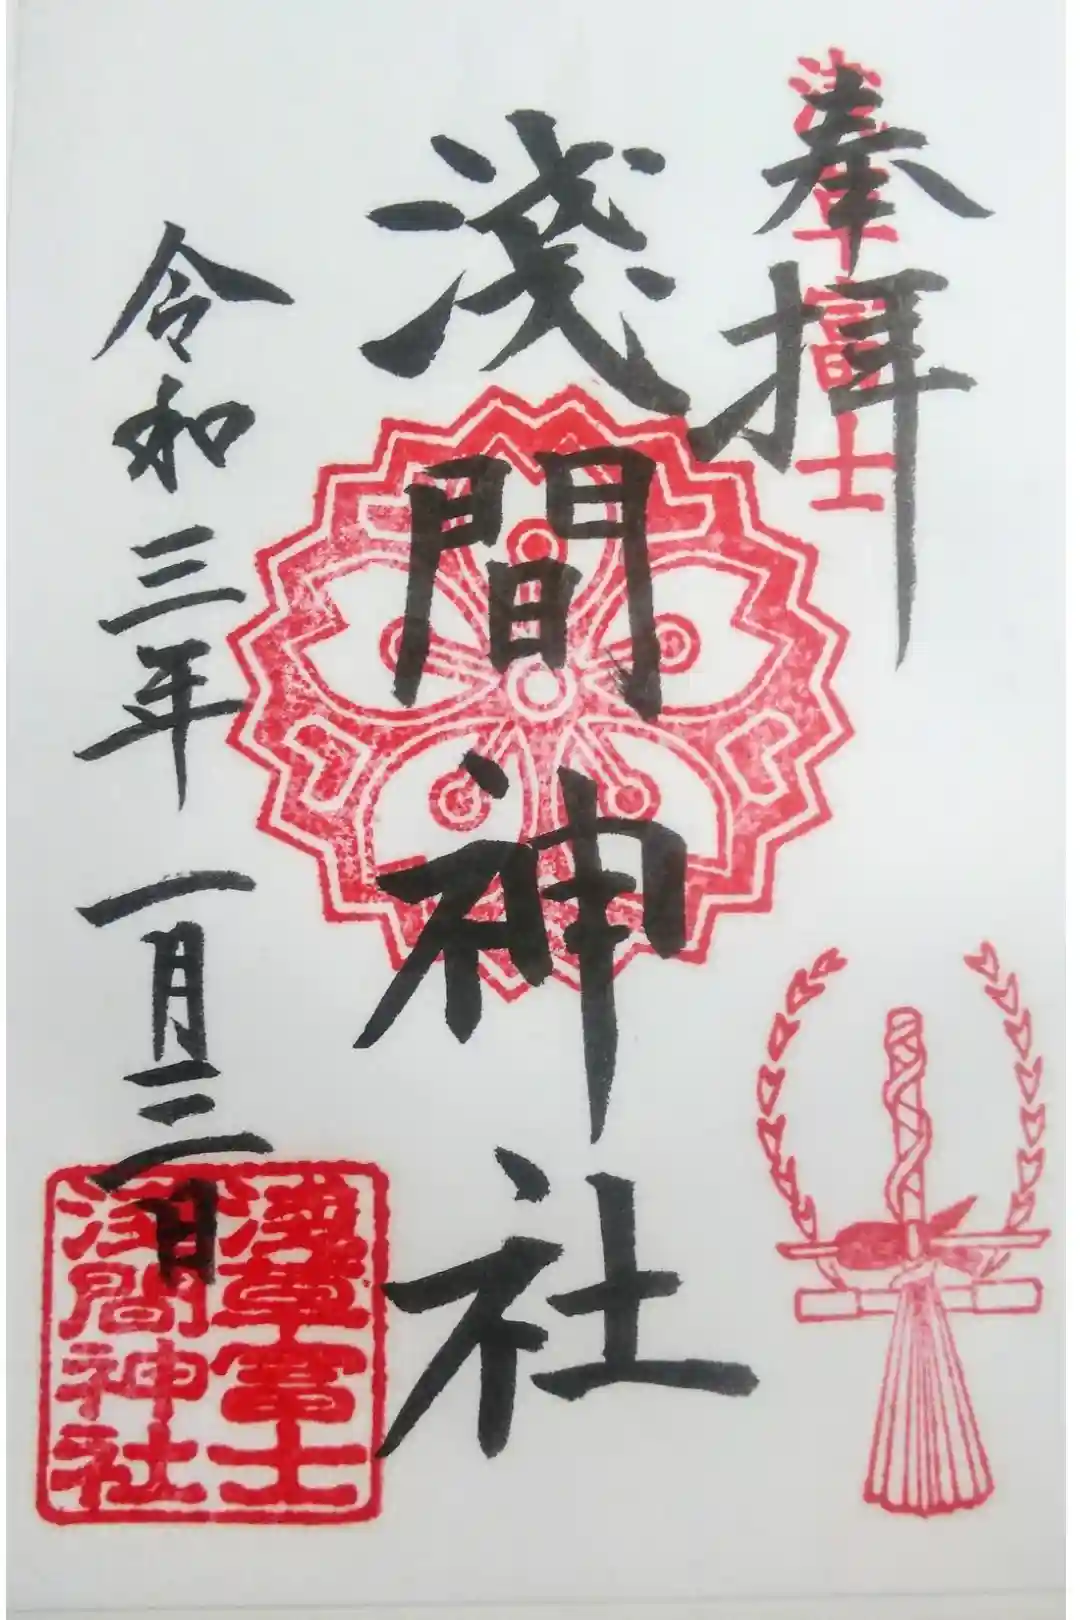 奉拝
浅草富士
淺間神社
令和三年 一月三日
淺草富士
浅間神社